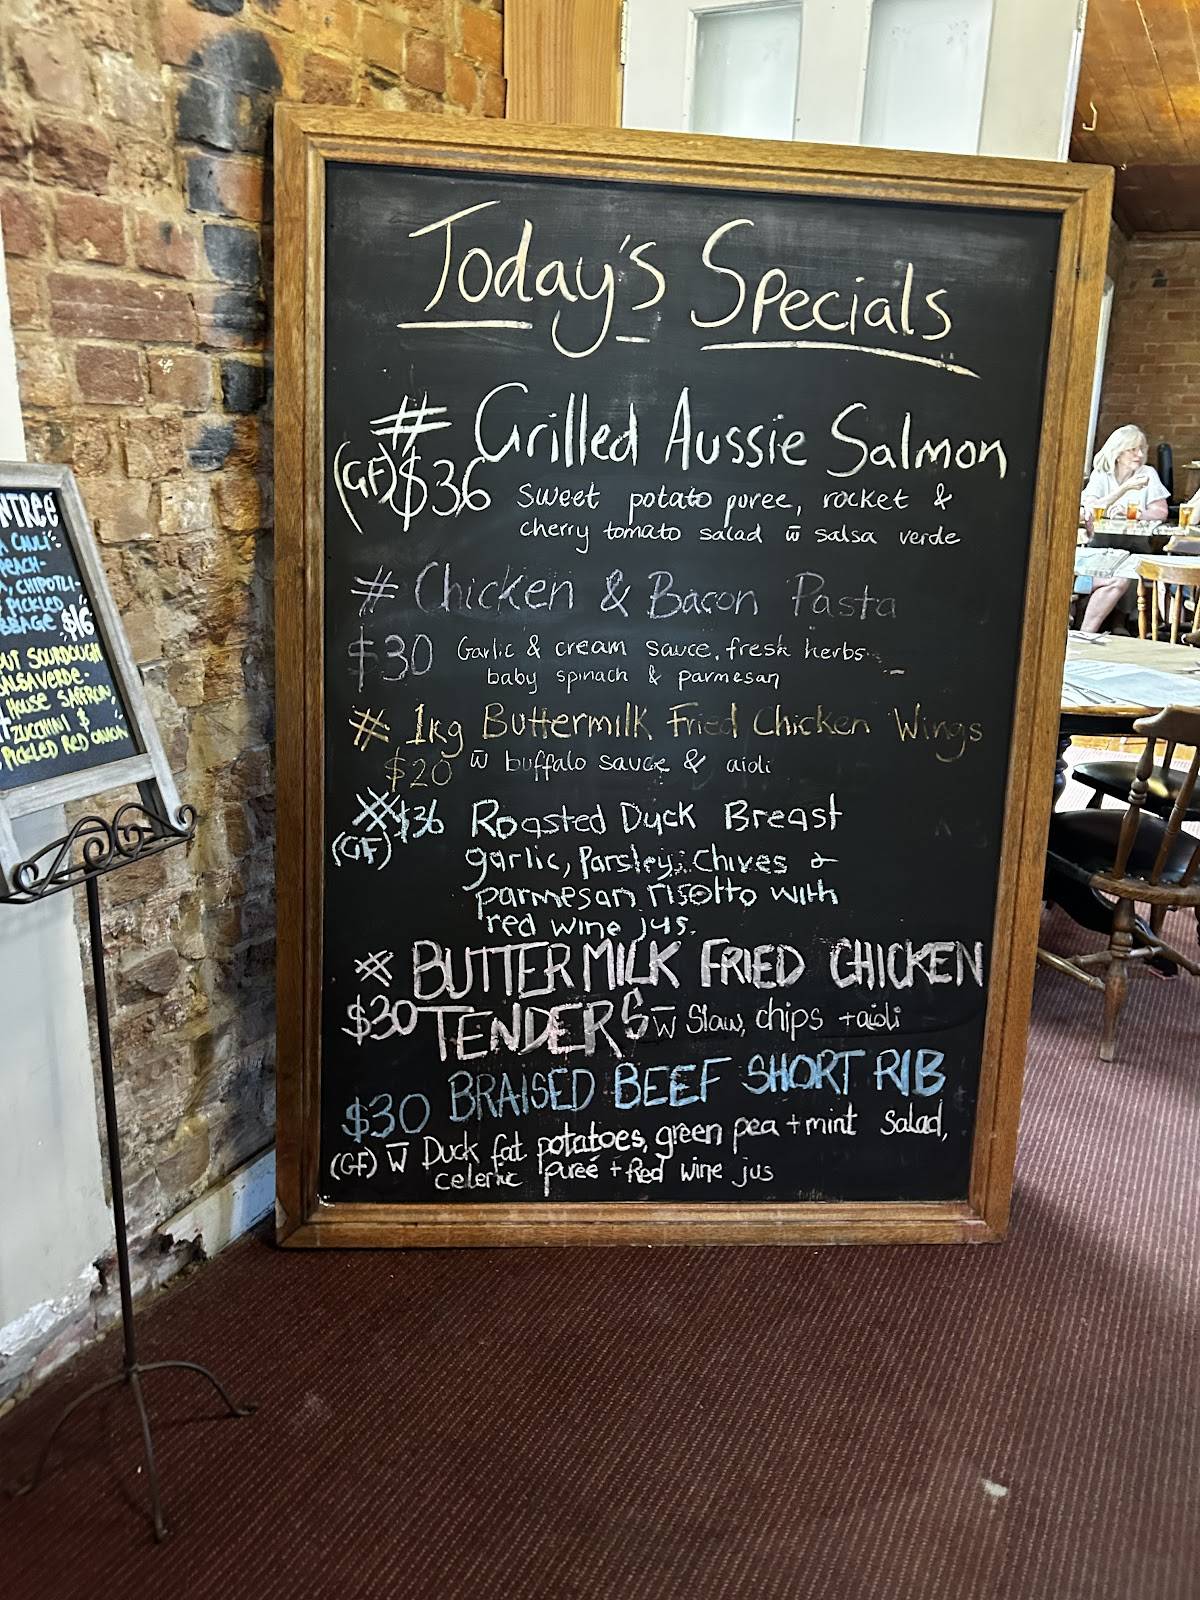 Today's Specials
# Grilled Aussie Salmon
(GF) $36 sweet potato puree, rocket &
cherry tomato salad w̄ salsa verde
# Chicken & Bacon Pasta
$30 Garlic & cream sauce, fresh herbs
baby spinach & parmesan
# 1kg Buttermilk Fried Chicken Wings
$20 w̄ buffalo sauce & aioli
# $36 Roasted Duck Breast
(GF) garlic, Parsley, Chives &
parmesan risotto with
red wine jus.
# BUTTERMILK FRIED CHICKEN
$30 TENDERS w̄ Slaw, chips + aioli
BRAISED BEEF SHORT RIB
$30
(GF) w̄ Duck fat potatoes, green pea + mint salad,
celeriac pureé + Red wine jus
NTREE
CAULI
PEACH
, CHIPOTLI-
PICKLED
BBAGE $16
OUT SOURDOUGH
ALSAVERDE-
HOUSE SAFFRON
ZUCCHINI $
PICKLED RED ONION